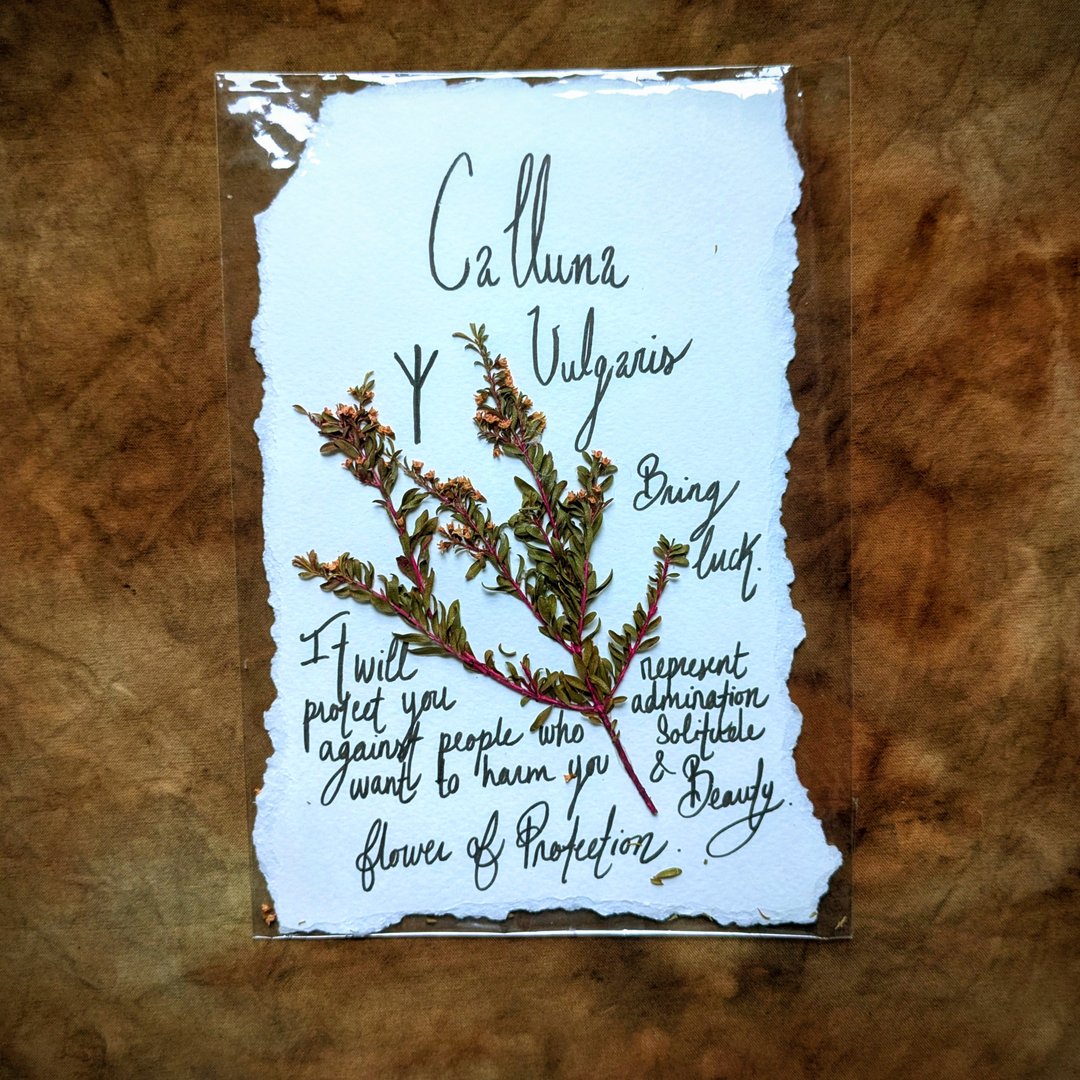 Calluna
Vulgaris
ᛉ
Bring
luck.
It will
protect you
against people who
want to harm you
represent
admination
Solitude
& Beauty.
flower of Protection.